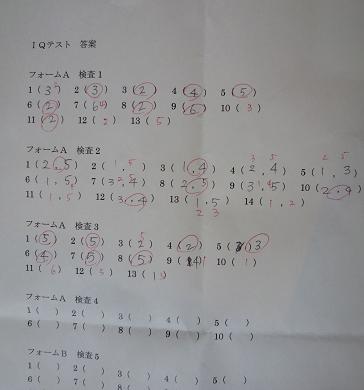 IQテスト 答案
フォームA 検査1
1 (3) 2 (3) 3 (2) 4 (4) 5 (5)
6 (2) 7 (6) 8 (2) 9 (6) 10 (3)
11 (2) 12 (2) 13 (5)
フォームA 検査2
1 (2.5) 2 (1,5) 3 (1,4) 4 (2,4) 5 (1,3)
6 (1,5) 7 (3,4) 8 (2,5) 9 (3,4) 10 (2,4)
11 (1,5) 12 (3,4) 13 (1,5) 14 (1,2)
2 3
フォームA 検査3
1 (5) 2 (5) 3 (2) 4 (2) 5 (3)
6 (4) 7 (5) 8 (5) 9 10 (1)
11 (6) 12 (3) 13
フォームA 検査4
1 ( ) 2 ( ) 3 ( ) 4 ( ) 5 ( )
6 ( ) 7 ( ) 8 ( ) 9 ( ) 10 ( )
フォームB 検査5
1 ( ) 2 ( ) 3 ( ) 4 ( ) 5 ( )
6 ( ) 7 ( ) 8 ( ) 9 ( ) 10 ( )